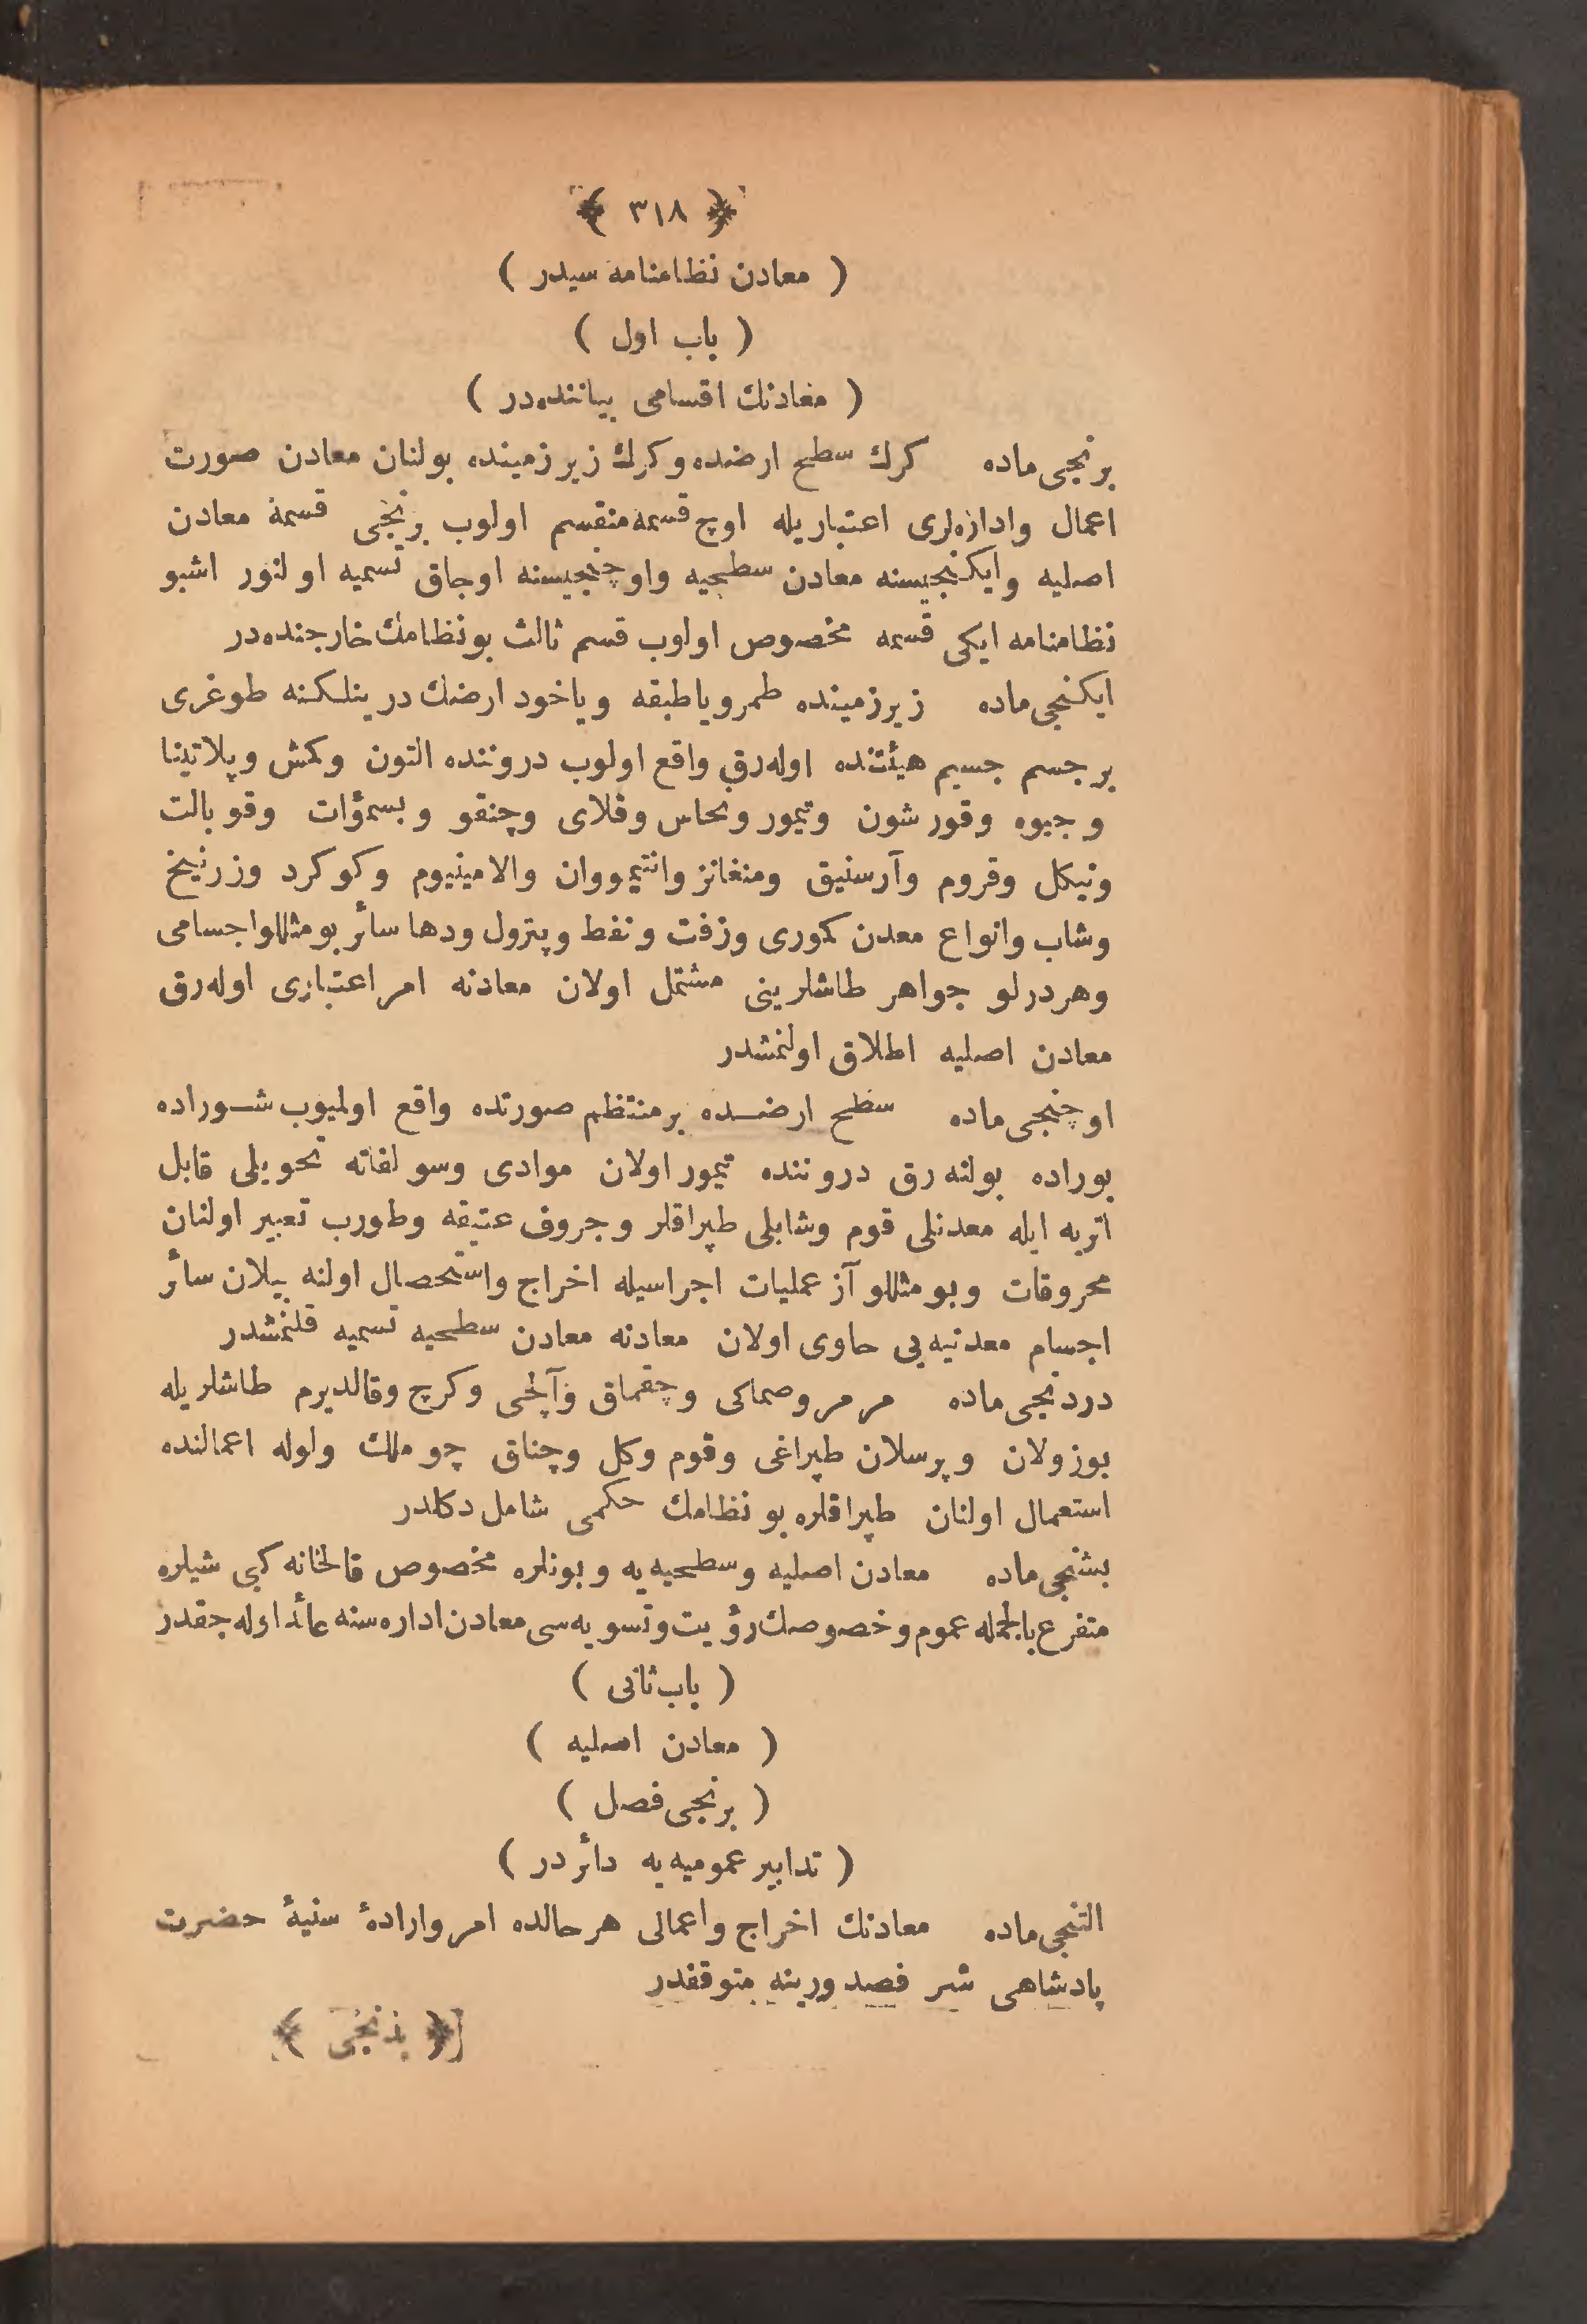 ﴿ ٣١٨ ﴾
( معادن نظامنامه سیدر )
( باب اول )
( معادنك اقسامی بیاننده‌در )
برنجی ماده كرك سطح ارضده وكرك زیر زمینده بولنان معادن صورت
اعمال واداره‌لری اعتباریله اوچ قسمه منقسم اولوب برنجی قسمه معادن
اصلیه وایكنجیسنه معادن سطحیه واوچنجیسنه اوجاق تسمیه اولنور اشبو
نظامنامه ایكی قسمه مخصوص اولوب قسم ثالث بو نظامك خارجنده‌در
ایكنجی ماده زیر زمینده طمر ویا طبقه ویاخود ارضك درینلكنه طوغری
بر جسم جسیم هیئتنده اوله‌رق واقع اولوب دروننده التون وكمش وپلاتینا
وجیوه وقورشون وتیمور ونحاس وقلای وچنقو وبسمؤات وقوبالت
ونیكل وقروم وآرسنیق ومنغانز وانتیمووان والامینیوم وكوكرد وزرنیخ
وشاب وانواع معدن كموری وزفت ونفط وپترول ودها سائر بومثللو اجسامی
وهر درلو جواهر طاشلرینی مشتمل اولان معادنه امر اعتباری اوله‌رق
معادن اصلیه اطلاق اولنمشدر
اوچنجی ماده سطح ارضـــده بر منتظم صورتده واقع اولمیوب شــوراده
بوراده بولنه‌رق دروننده تیمور اولان موادی وسولفاته تحویلی قابل
اتربه ایله معدنلی قوم وشابلی طپراقلر وجروف عتیقه وطورب تعبیر اولنان
محروقات وبومثللو آز عملیات اجراسیله اخراج واستحصال اولنه بیلان سائر
اجسام معدنیه‌یی حاوی اولان معادنه معادن سطحیه تسمیه قلنمشدر
دردنجی ماده مرمر وصماكی وچقماق وآلچی وكرچ وقالدیرم طاشلریله
بوزولان وپرسلان طپراغی وقوم وكل وچناق چوملك ولوله اعمالنده
استعمال اولنان طپراقلره بو نظامك حكمی شامل دكلدر
بشنجی ماده معادن اصلیه وسطحیه‌یه وبونلره مخصوص قالخانه كبی شیلره
متفرع بالجمله عموم وخصوصك رؤیت وتسویه‌سی معادن اداره‌سنه عائد اوله‌جقدر
( باب ثانی )
( معادن اصلیه )
( برنجی فصل )
( تدابیر عمومیه‌یه دائر در )
التنجی ماده معادنك اخراج واعمالی هر حالده امر وارادهٔ سنیهٔ حضرت
پادشاهی شر فصدورینه متوقفدر